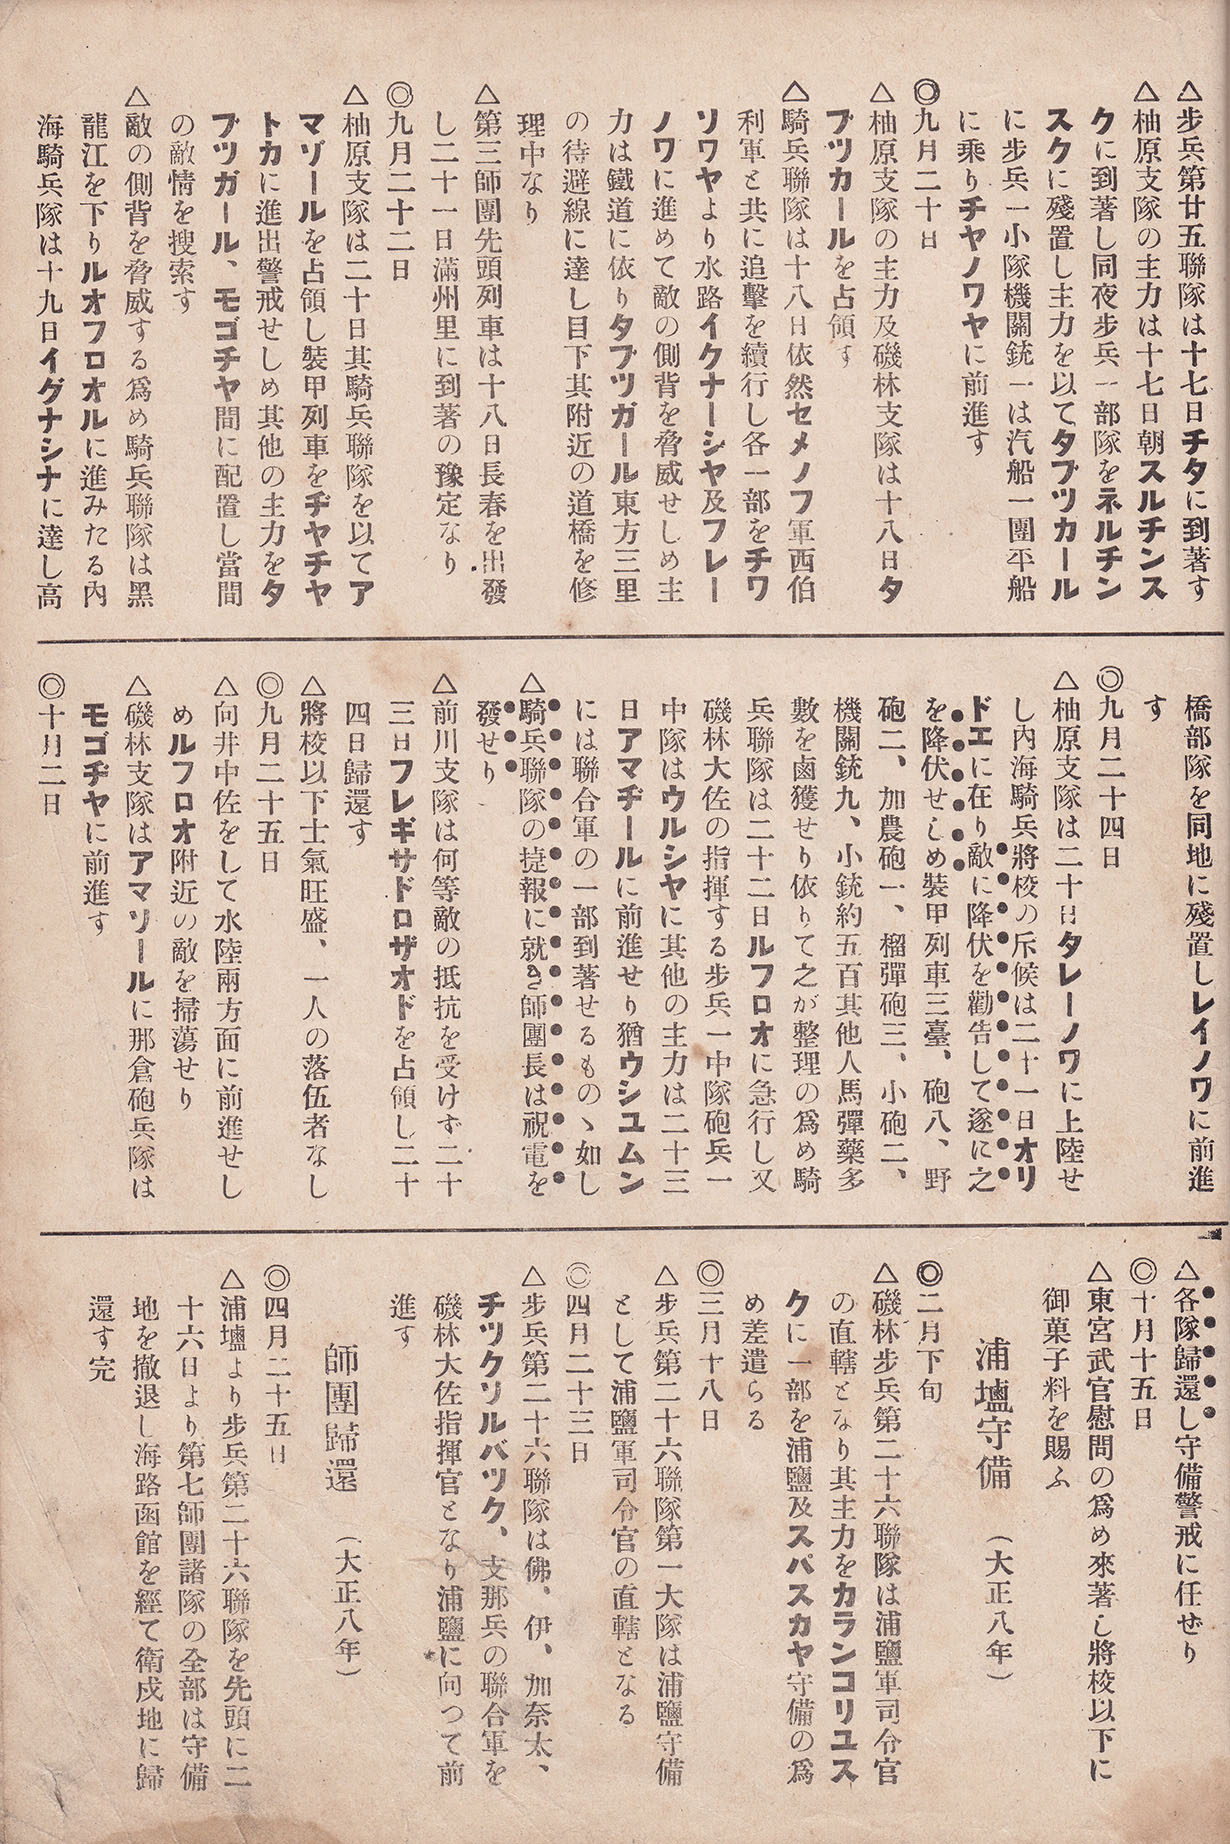 △步兵第廿五聯隊は十七日チタに到著す
△柚原支隊の主力は十七日朝スルチンス
クに到著し同夜步兵一部隊をネルチン
スクに殘置し主力を以てタブツカール
に步兵一小隊機關銃一は汽船一團平船
に乘りチヤノワヤに前進す
◎九月二十日
△柚原支隊の主力及磯林支隊は十八日タ
ブツカールを占領す
△騎兵聯隊は十八日依然セメノフ軍西伯
利軍と共に追擊を續行し各一部をチワ
ソワヤより水路イクナーシヤ及フレー
ノワに進めて敵の側背を脅威せしめ主
力は鐵道に依りタブツガール東方三里
の待避線に達し目下其附近の道橋を修
理中なり
△第三師團先頭列車は十八日長春を出發
し二十一日滿州里に到著の豫定なり
◎九月二十二日
△柚原支隊は二十日其騎兵聯隊を以てア
マゾールを占領し裝甲列車をヂヤチヤ
トカに進出警戒せしめ其他の主力をタ
ブツガール、モゴチヤ間に配置し當間
の敵情を搜索す
△敵の側背を脅威する爲め騎兵聯隊は黑
龍江を下りルオフロオルに進みたる內
海騎兵隊は十九日イグナシナに達し高
橋部隊を同地に殘置しレイノワに前進
す
◎九月二十四日
△柚原支隊は二十日タレーノワに上陸せ
し內海騎兵將校の斥候は二十一日オリ
ドエに在り敵に降伏を勸告して遂に之
を降伏せしめ裝甲列車三臺、砲八、野
砲二、加農砲一、榴彈砲三、小砲二、
機關銃九、小銃約五百其他人馬彈藥多
數を鹵獲せり依りて之が整理の爲め騎
兵聯隊は二十二日ルフロオに急行し又
磯林大佐の指揮する步兵一中隊砲兵一
中隊はウルシヤに其他の主力は二十三
日アマヂールに前進せり猶ウシユムン
には聯合軍の一部到著せるものゝ如し
△騎兵聯隊の捷報に就き師團長は祝電を
發せり
△前川支隊は何等敵の抵抗を受けず二十
三日フレギサドロザオドを占領し二十
四日歸還す
△將校以下士氣旺盛、一人の落伍者なし
◎九月二十五日
△向井中佐をして水陸兩方面に前進せし
めルフロオ附近の敵を掃蕩せり
△磯林支隊はアマソールに那倉砲兵隊は
モゴヂヤに前進す
◎十月二日
△各隊歸還し守備警戒に任ぜり
◎十月十五日
△東宮武官慰問の爲め來著し將校以下に
御菓子料を賜ふ
浦壚守備 （大正八年）
◎二月下旬
△磯林步兵第二十六聯隊は浦鹽軍司令官
の直轄となり其主力をカランコリユス
クに一部を浦鹽及スパスカヤ守備の爲
め差遣らる
◎三月十八日
△步兵第二十六聯隊第一大隊は浦鹽守備
として浦鹽軍司令官の直轄となる
◎四月二十三日
△步兵第二十六聯隊は佛、伊、加奈太、
チツクソルバツク、支那兵の聯合軍を
磯林大佐指揮官となり浦鹽に向つて前
進す
師團歸還 （大正八年）
◎四月二十五日
△浦壚より步兵第二十六聯隊を先頭に二
十六日より第七師團諸隊の全部は守備
地を撤退し海路函館を經て衛戍地に歸
還す完